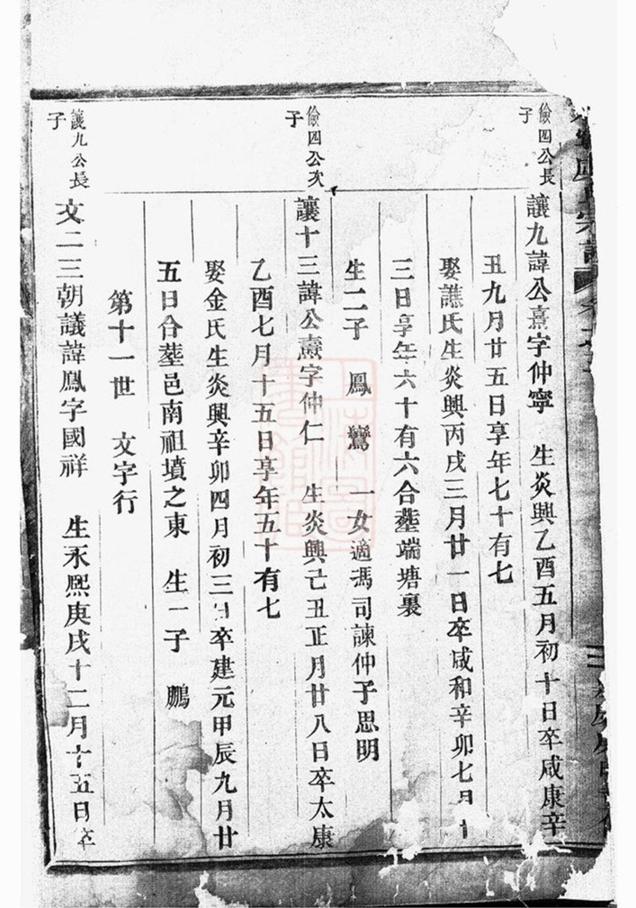 儉四公長子
讓九諱公熹字仲寧 生炎興乙酉五月初十日卒咸康辛
丑九月廿五日享年七十有七
娶譙氏生炎興丙戌三月廿一日卒咸和辛卯七月十
三日享年六十有六合塟端塘裏
生二子 鳳 鸞 一女適馮司諫仲子思明
儉四公次子
讓十三諱公燾字仲仁 生炎興己丑正月廿八日卒太康
乙酉七月十五日享年五十有七
娶金氏生炎興辛卯四月初三日卒建元甲辰九月廿
五日合塟邑南祖墳之東 生一子 鵬
第十一世 文字行
讓九公長子
文二三朝議諱鳳字國祥 生永熙庚戌十二月十五日卒